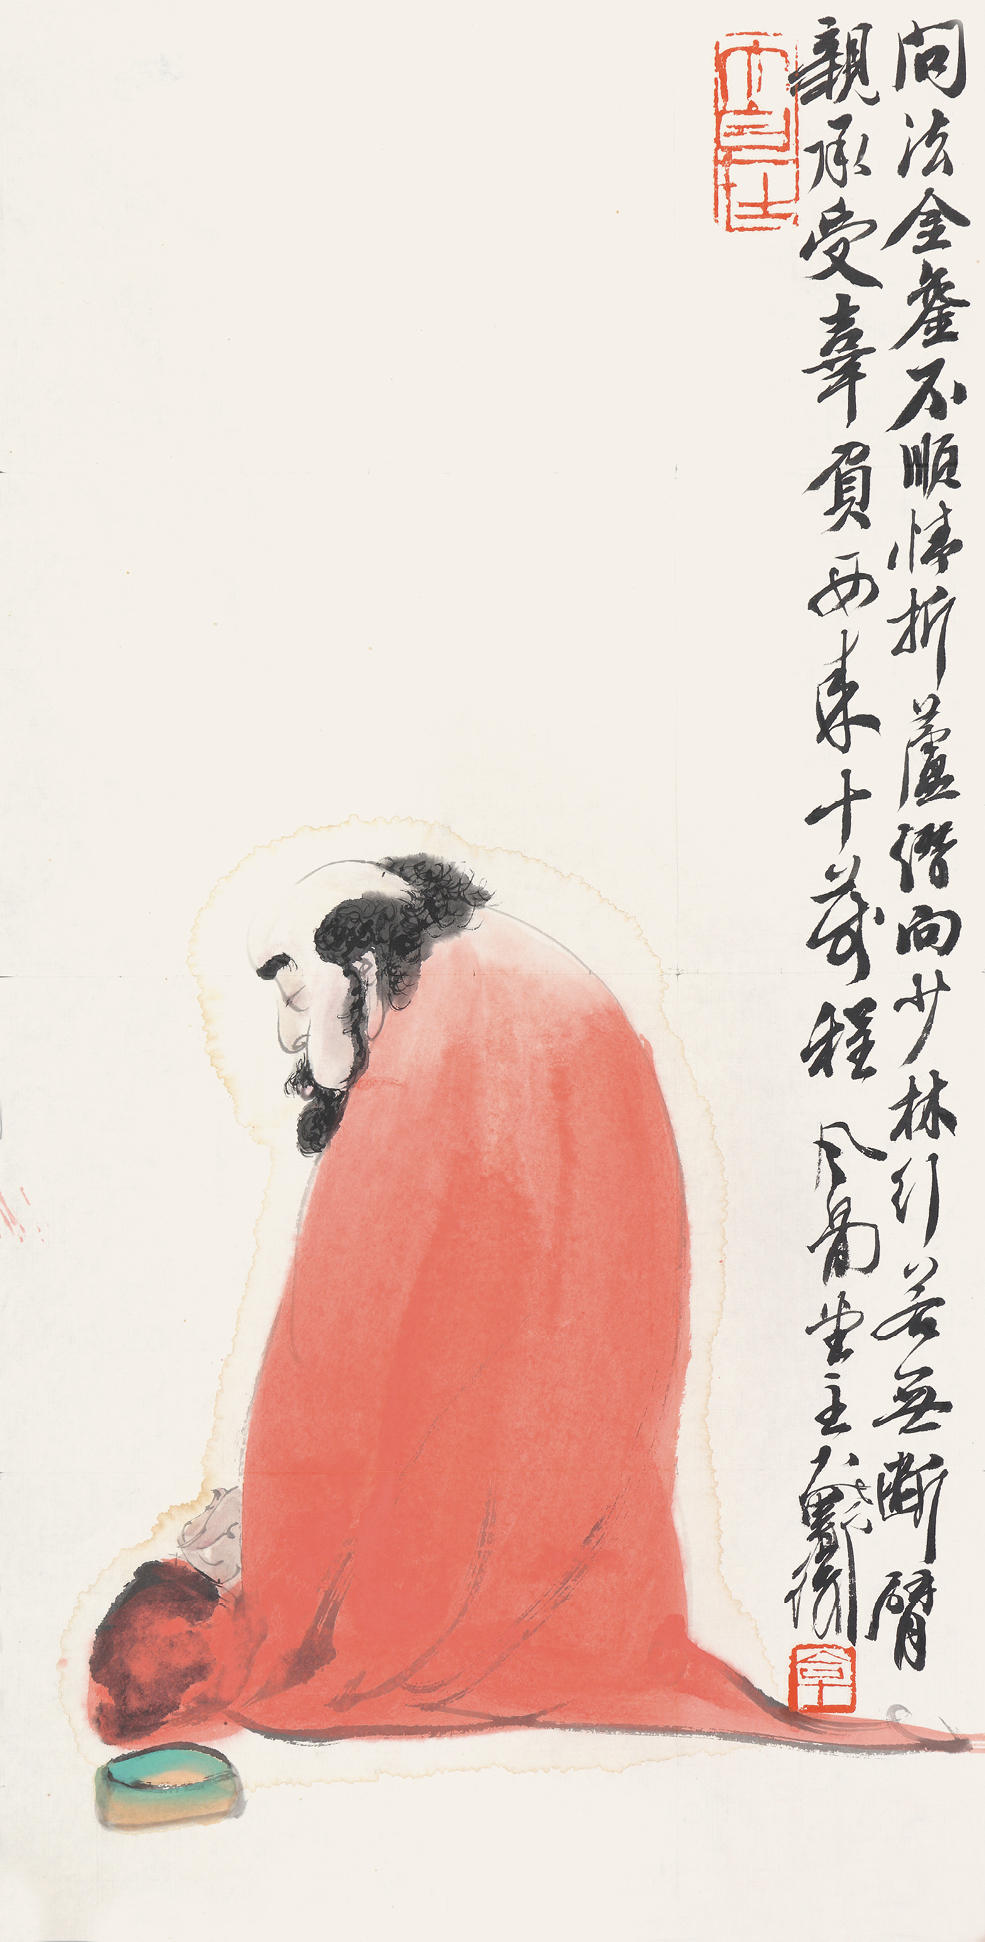 問法金鑾不順情折蘆潛向少林行若無斷臂
親承受辜負西來十萬程 風骨堂主